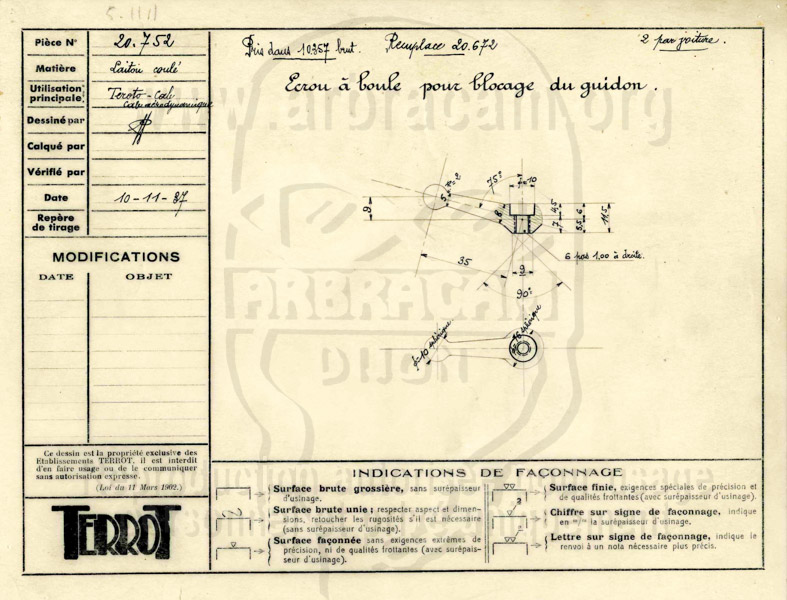 Pièce N° 20.752
Matière Laiton coulé
Utilisation principale Teroto - Cale
Cale aérodynamique
Dessiné par
Calqué par
Vérifié par
Date 10-11-37
Repère de tirage
MODIFICATIONS
DATE OBJET
Ce dessin est la propriété exclusive des
Etablissements TERROT, il est interdit
d'en faire usage ou de le communiquer
sans autorisation expresse.
(Loi du 11 Mars 1902.)
TERROT
Pris dans 10.357 brut. Remplace 20.672 2 par voiture.
Ecrou à boule pour blocage du guidon.
R=2
75°
10
5
9
8
7
4,5
5,5
6
11,5
35
6 pas 1,00 à droite.
9
90°
10 sphérique
16 sphérique
www.arbracam.org
ARBRACAM
DIJON
INDICATIONS DE FAÇONNAGE
Surface brute grossière, sans surépaisseur
d'usinage.
Surface brute unie ; respecter aspect et dimen-
sions, retoucher les rugosités s'il est nécessaire
(sans surépaisseur d'usinage).
Surface façonnée sans exigences extrêmes de
précision, ni de qualités frottantes (avec surépais-
seur d'usinage).
Surface finie, exigences spéciales de précision et
de qualités frottantes (avec surépaisseur d'usinage).
Chiffre sur signe de façonnage, indique
en m/m la surépaisseur d'usinage.
Lettre sur signe de façonnage, indique le
renvoi à un nota nécessaire plus précis.